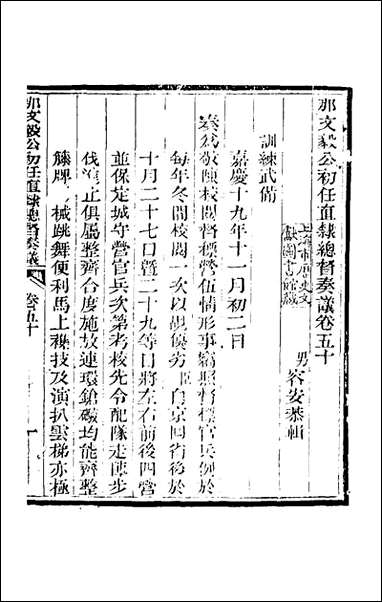 那文毅公初任直隸總督奏議卷五十
上海市歷史文
獻圖書館藏
男容安恭輯
訓練武備
嘉慶十九年十一月初二日
奏爲敬陳校閱督標營伍情形事竊照督標官兵例於
每年冬間校閱一次以覘優劣臣自京回省後於
十月二十七日暨二十九等日將左右前後四營
並保定城守營官兵次第考核先令配隊走陣步
伐止俱屬整齊合度施放連環鎗礮均能齊整
籐牌械跳舞便利馬上雜技及演扒雲梯亦極
那文毅公初任直隸總督奏議
卷五十
一